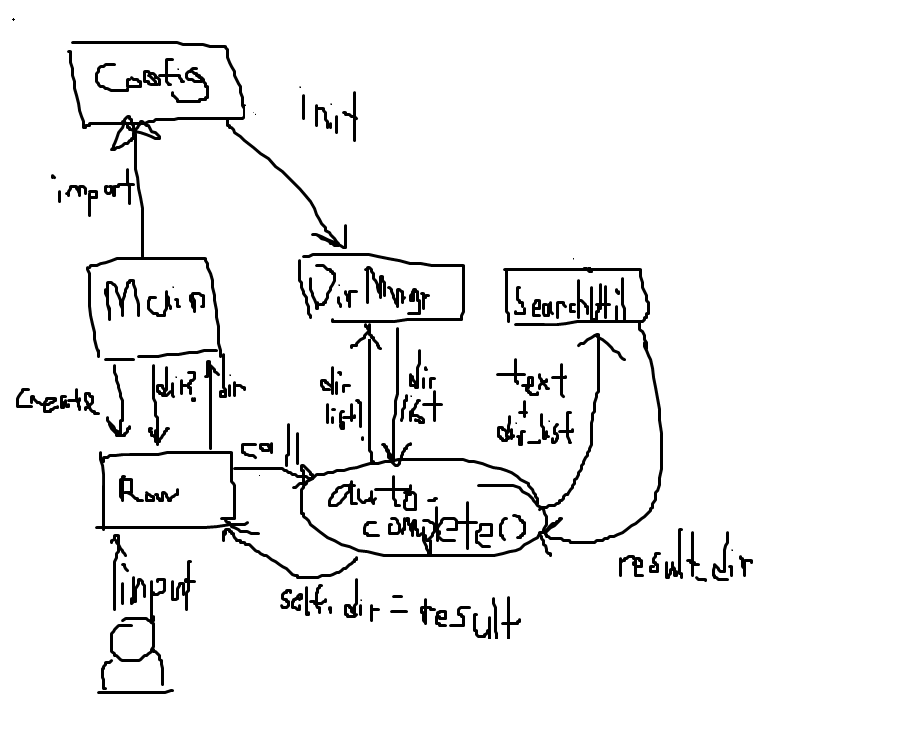 Config
init
import
Main
Dir Mngr
SearchUtil
create
dir?
dir
dir
list?
dir
list
text
+
dir_list
call
Row
auto
complete()
result_dir
input
self.dir = result